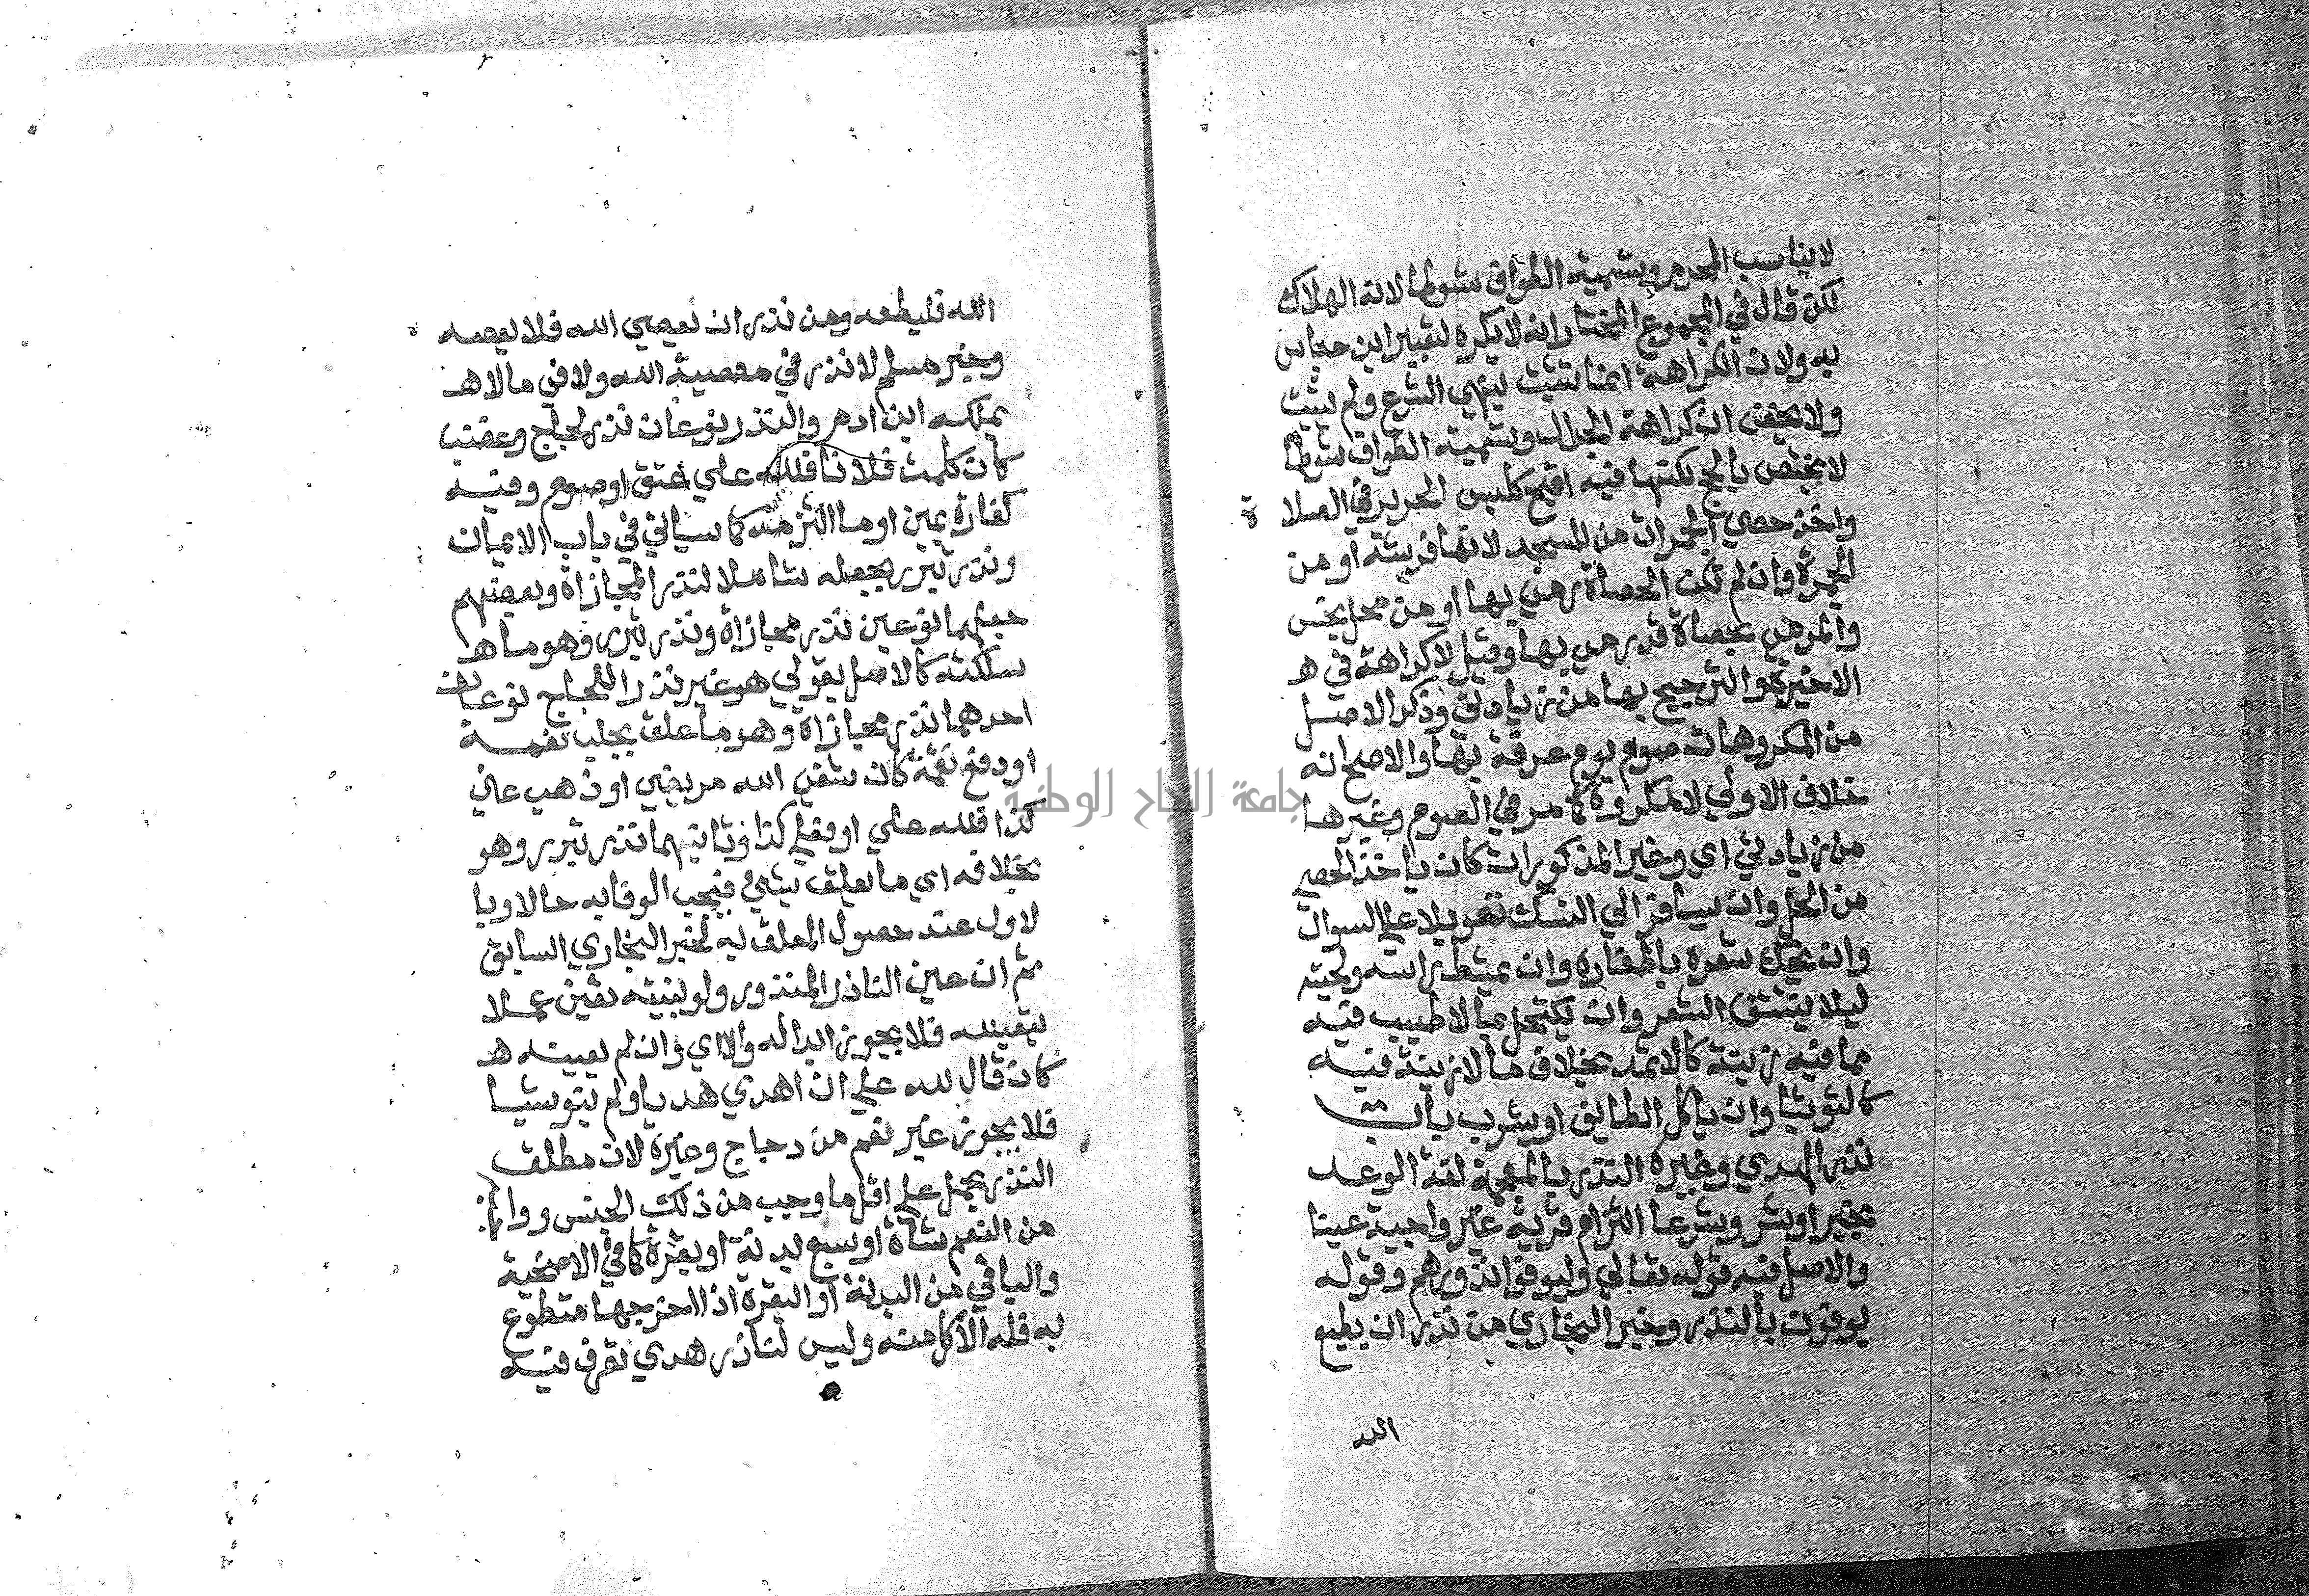 لا يناسب المحرم وتسمية الطواف شوطا لانه الهلاك
لكن قال في المجموع المختار انه لا يكره لتعبير ابن عباس
به ولان الكراهة انما تثبت بنهي الشرع ولم يثبت
ولا يخفى ان كراهة الجدال وتسمية الطواف شوطا
لا يختص بالحج لكنها فيه اقبح كلبس الحرير في الصلاة
واخذ حصى الجمرات من المسجد لانها فرشه او من
الجمرة وان لم تكن الحصاة رمي بها او من محل نجس
والرمي بحصاة قد رمي بها وقيل لا كراهة في هـ
الاخيرة والترجيح بها من زيادتي وذكر الاصل
من المكروهات صوم يوم عرفة بها والاصح انه
خلاف الاولى لا مكروه كما مر في الصوم وغيرها
من زيادتي اي وغير المذكورات كان ياخذ الحصى
من الحل وان يسافر الي النسك تعويلا على السوال
وان يحك شعره باظفاره وان يمشط راسه ولحيته
ليلا ينتتف الشعر وان يكتحل بما لا طيب فيه
مما فيه زينة كالاثمد بخلاف ما لا زينة فيه
كالتوتيا وان ياكل الطايف او يشرب باب
نذر الهدي وغيره النذر بالمعجمة لغة الوعد
بخير او شر وشرعا التزام قربة غير واجبة عينا
والاصل فيه قوله تعالي وليوفوا نذورهم وقوله
يوفون بالنذر وخبر البخاري من نذر ان يطيع
الله
الله فليطعه ومن نذر ان يعصي الله فلا يعصه
وخبر مسلم لا نذر في معصية الله ولا في ما لا هـ
يملكه ابن ادم والنذر نوعان نذر لجاج وغضب
كان كلمت فلانا فلله علي عتق او صوم وفيه
كفارة يمين او ما التزمه كما سياتي في باب الايمان
ونذر تبرر بجعله شاملا لنذر المجازاة وبعضهم
جعلهما نوعين نذر مجازاة ونذر تبرر وهو ما هـ
سلكته كالاصل بقولي هو غير نذر اللجاج نوعان
احدهما نذر مجازاة وهو ما علق بجلب نعمة
او دفع نقمة كان شفى الله مريضي او ذهب عني
كذا فلله علي او فعلي كذا وثانيهما نذر تبرر وهو
بخلافه اي ما يعلق بشيء فيجب الوفا به حالا وبا
لاول عند حصول المعلق به لخبر البخاري السابق
ثم ان عين الناذر المنذور ولو بنيته تعين عملا
بتعينه فلا يجوز ابداله والا اي وان لم يعينه هـ
كان قال لله علي ان اهدي هديا ولم ينو شيا
فلا يجوز غير نعم من دجاج وغيره لان مطلق
النذر يحمل على اقل ما وجب من ذلك الجنس ووا
من النعم شاة او سبع بدنة او بقرة كما في الاضحية
والباقي من البدنة او البقرة اذا اخرجها متطوع
به فله الاكل منه وليس لناذر هدي تصرف فيه
جامعة النجاح الوطنية